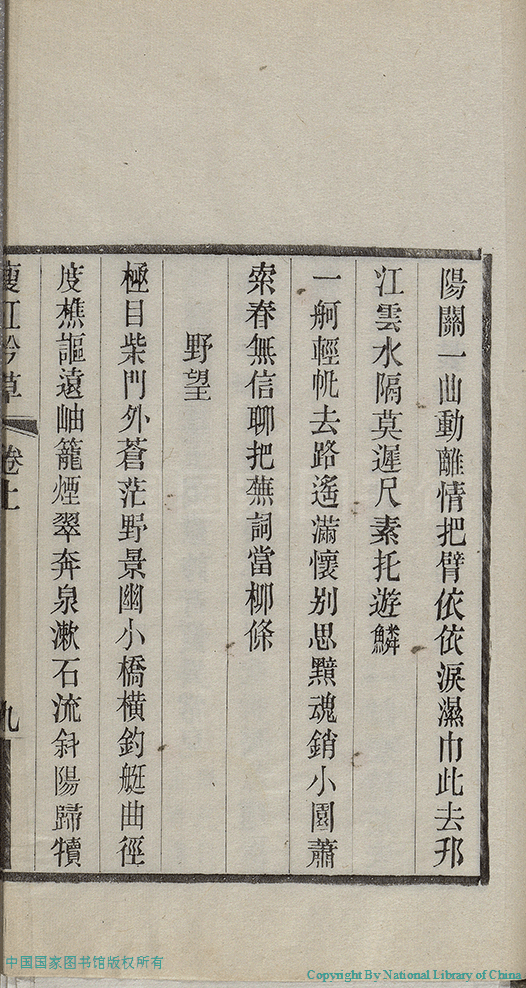 陽關一曲動離情把臂依依淚濕巾此去邗
江雲水隔莫遲尺素托遊鱗
一舸輕帆去路遙滿懷別思黯魂銷小園蕭
索春無信聊把蕪詞當柳條
野望
極目柴門外蒼茫野景幽小橋橫釣艇曲徑
度樵謳遠岫籠煙翠奔泉漱石流斜陽歸犢
瘦紅吟草
卷上
九
中国国家图书馆版权所有
Copyright By National Library of China